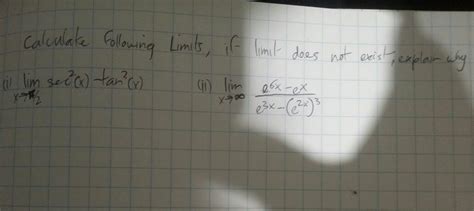 Calculate following Limits, if limit does not exist, explain why
(i) lim sec²(x) - tan²(x) (ii) lim e^6x - e^x / e^3x - (e^2x)^3
x→ 2 x→∞